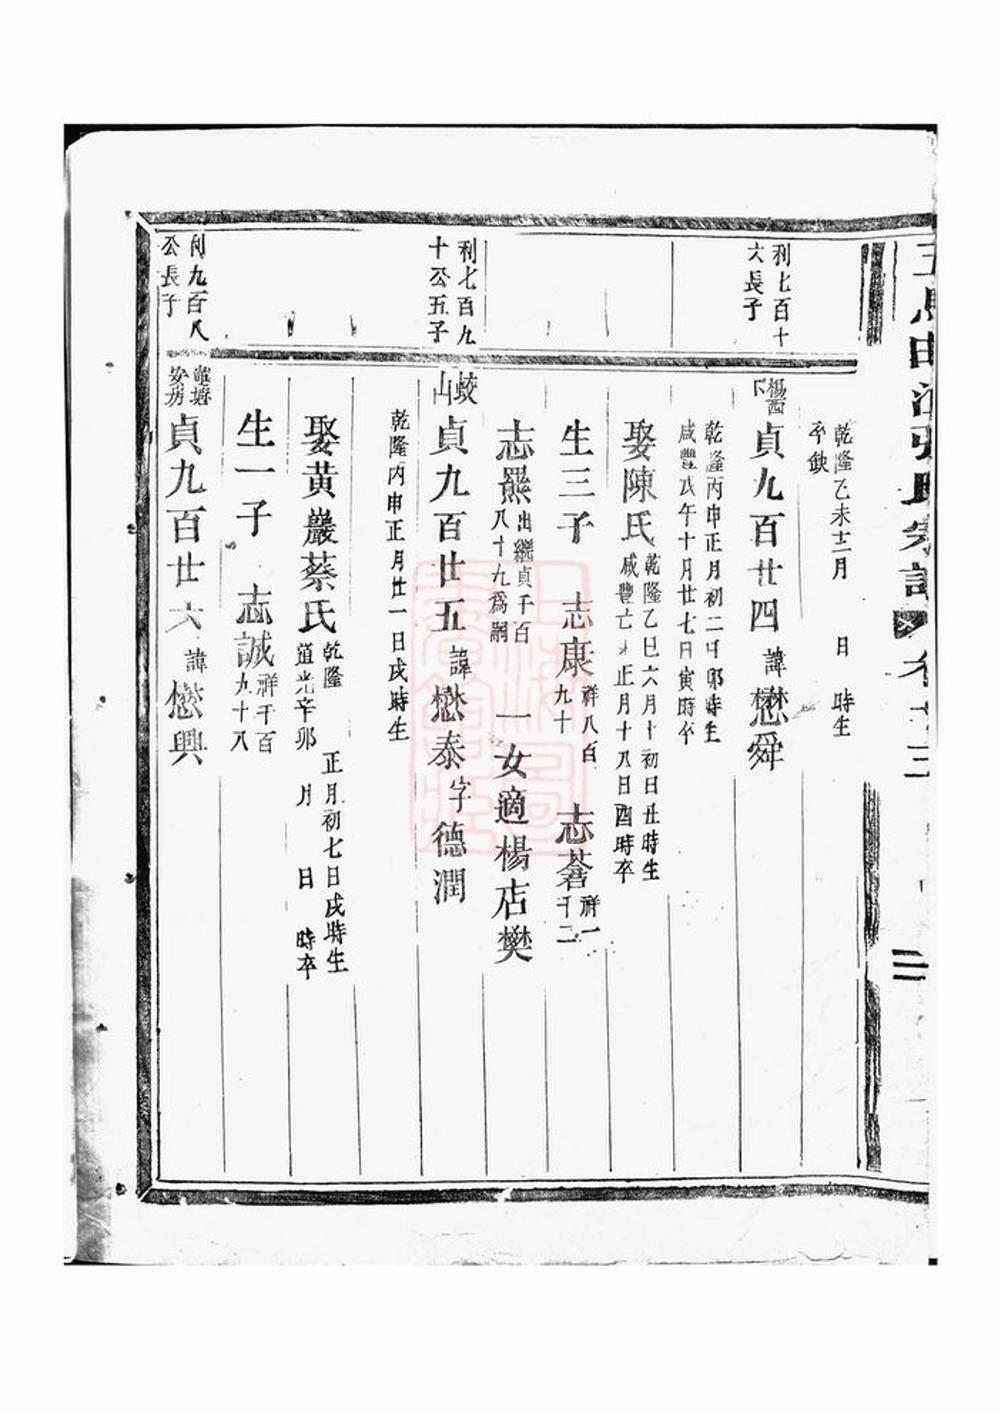 乾隆乙未十二月　日　時生
卒缺
利七百十
六長子
楊西
下
貞九百廿四　諱懋舜
乾隆丙申正月初二日卯時生
咸豐戊午十月廿七日寅時卒
娶陳氏
乾隆乙巳六月十初日丑時生
咸豐丁未正月十八日酉時卒
生三子　志康　祥八百
九十　志蒼　祥一
千二
志羆　出繼貞千百
八十九為嗣　一女適楊店樊
利七百九
十公五子
蛟
山
貞九百廿五　諱懋泰　字德潤
乾隆丙申正月廿一日戌時生
娶黃巖蔡氏
乾隆　正月初七日戌時生
道光辛卯　月　日　時卒
生一子　志誠　祥千百
九十八
利九百八
公長子
塘
安房
貞九百廿六　諱懋興